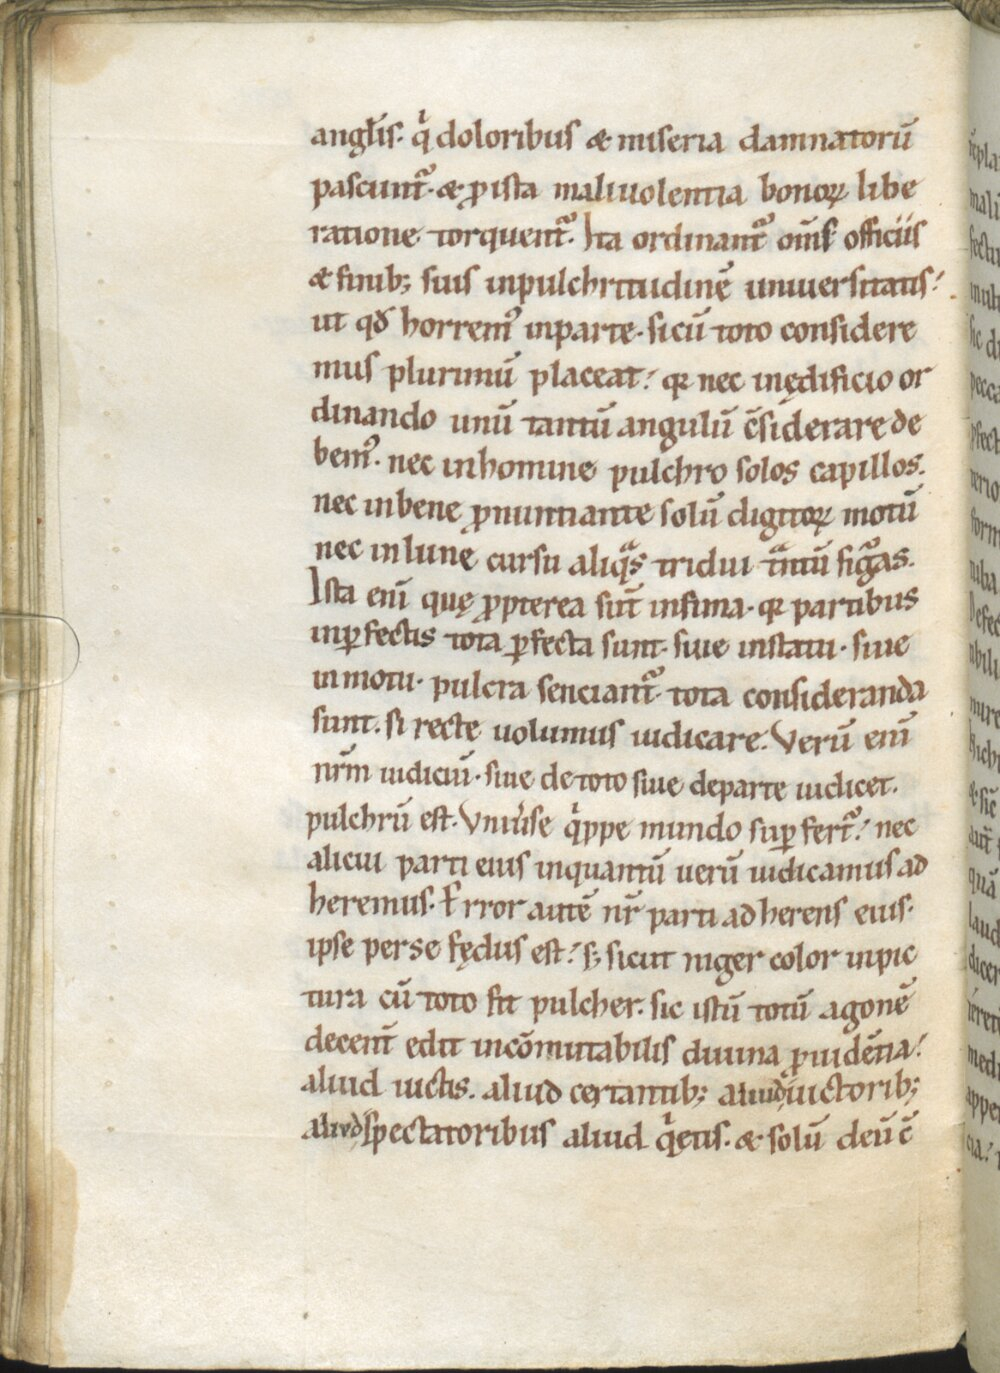 angl̄is· qⁱ doloribus & miseria damnatorū
pascunt᷑·& ꝓ ista maliuolentia bonoꝝ libe
ratione torquent᷑. Ita ordinant᷑ om̄s officiis
& finib; suis inpulchritudinē uniuersitatis!
ut qd̄ horremꝰ inparte·sicū toto considere
mus plurimū placeat! qꝛ nec inędificio or
dinando unū tantū angulū c̄siderare de
bemꝰ. nec inhomine pulchro solos capillos.
nec inbene ꝓnuntiante solū digitoꝝ motū
nec in lunę cursu aliqᵃs tridui tᵃntū figᵃas.
Ista eni̅ quę ꝓpterea sūt infima· qꝛ partibus
inꝑfectis tota ꝑfecta sunt· siue instatu· siue
in motu· pulcra senciant᷑· tota consideranda
sunt. si recte uolumus iudicare. Verū eni̅
nr̄m iudiciū· siue de toto siue departe iudicet.
pulchrū est. Vniu̾se qⁱppe mundo suꝑfert᷑! nec
alicui parti eius inquantū uerū iudicamus ad
heremus. Error autē nr̄ parti adherens eius·
ipse perse fędus est! s; sicut niger color inpic
tura cū toto fit pulcher. sic istū totū agonē
decent̄ edit incōmutabilis diuina ꝓuidētia!
aliud uictis. aliud certantib; aliud uictorib;
aliud spectatoribus aliud qⁱetis. & solū deū c̄